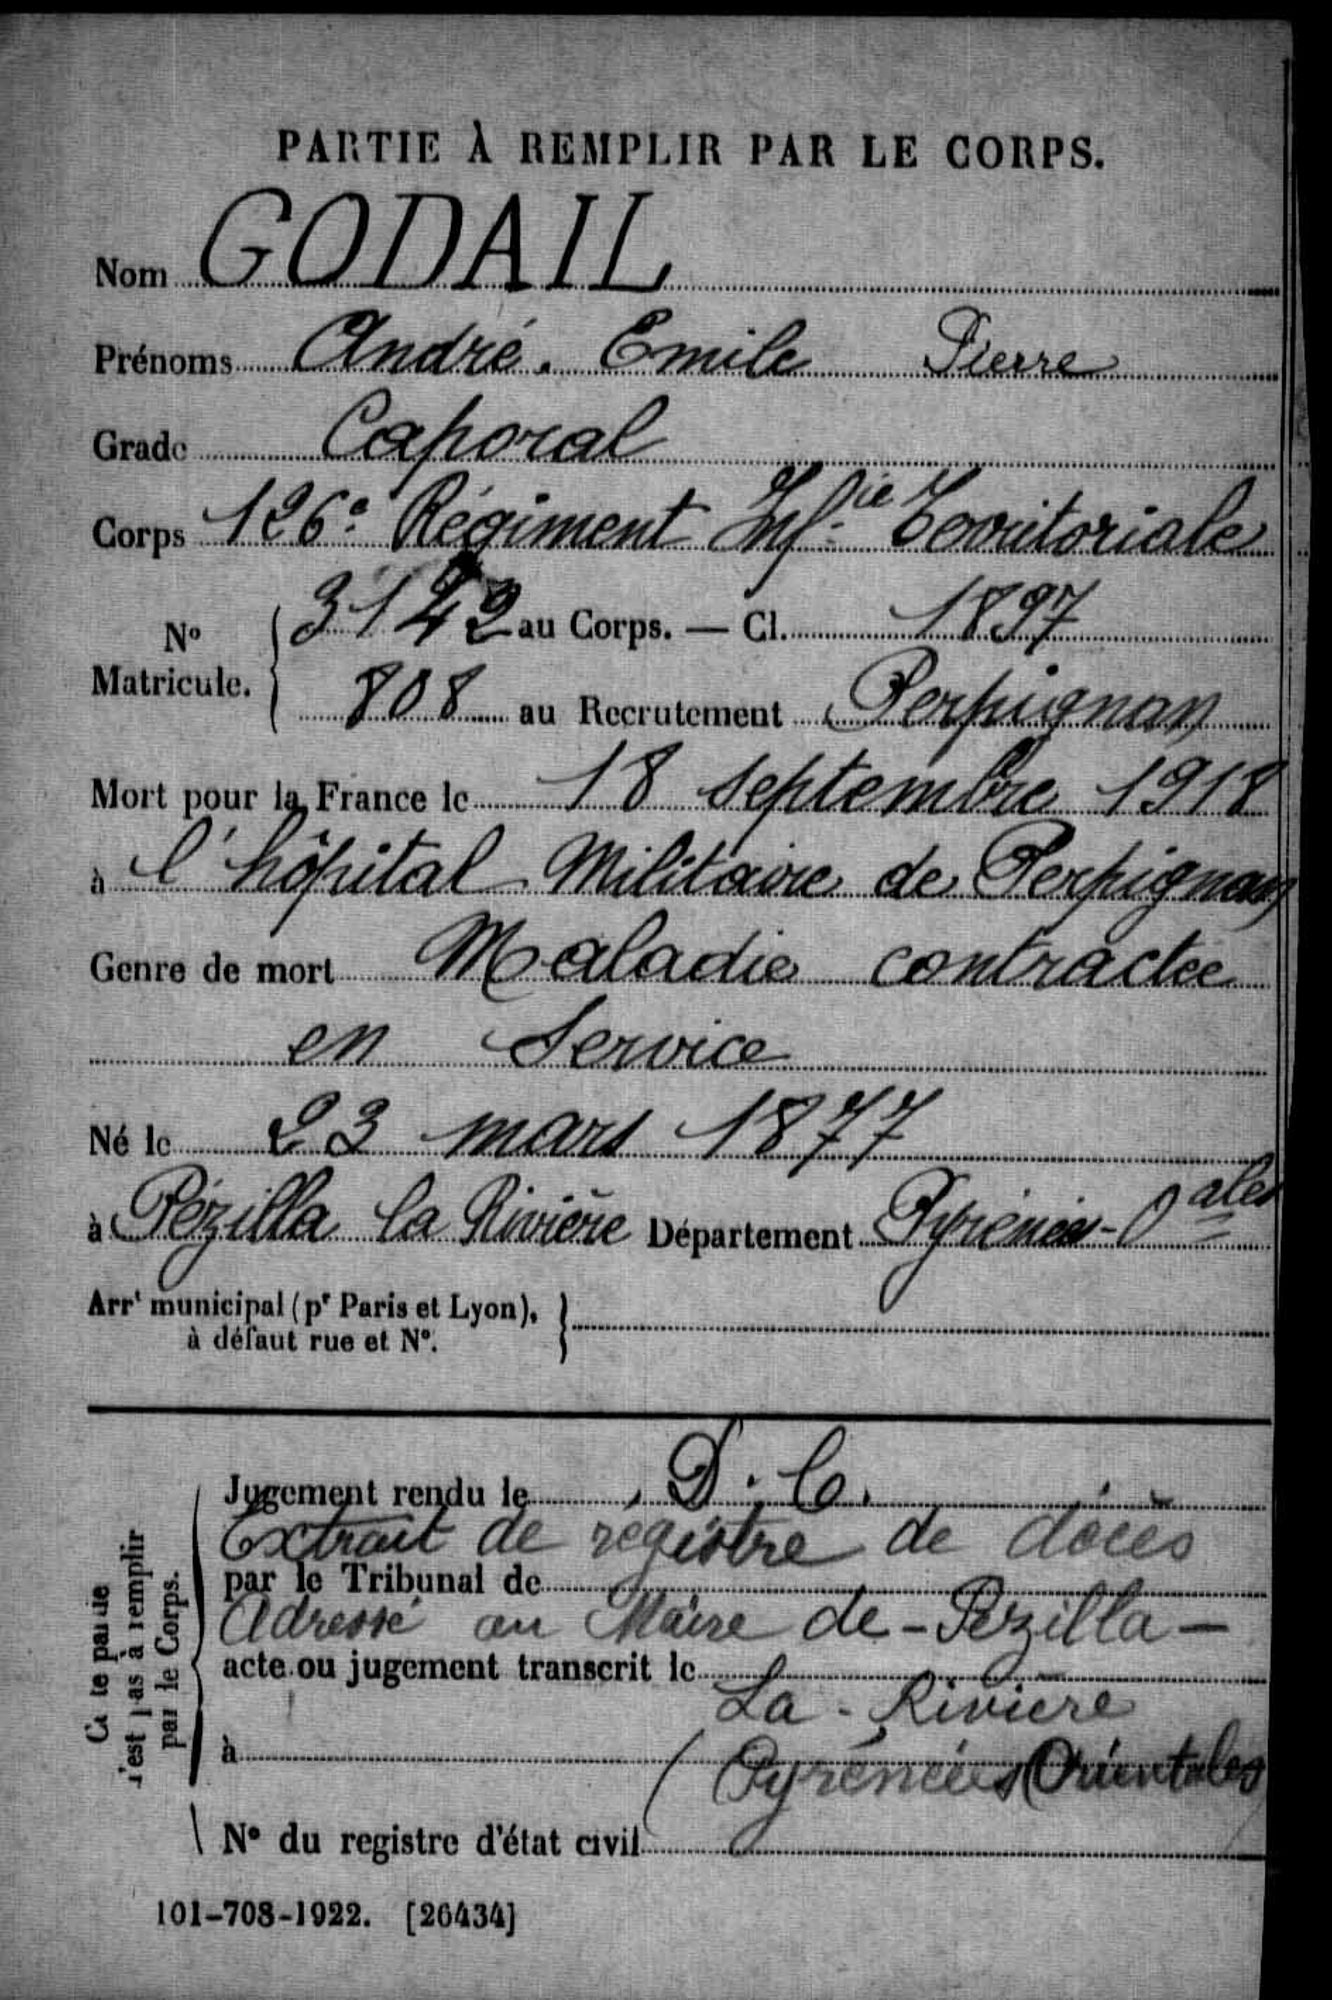 PARTIE À REMPLIR PAR LE CORPS.
Nom GODAIL
Prénoms André. Emile Pierre
Grade Caporal
Corps 126e Régiment Inf.ie Territoriale
No Matricule. 3142 au Corps. — Cl. 1897
808 au Recrutement Perpignan
Mort pour la France le 18 septembre 1918
à l'hôpital Militaire de Perpignan
Genre de mort Maladie contractée
en Service
Né le 23 mars 1877
à Pézilla la Rivière Département Pyrénées-Oales
Arrt municipal (pr Paris et Lyon),
à défaut rue et No.
Cette partie
n'est pas à remplir
par le Corps.
Jugement rendu le D. C.
Extrait de registre de décès
par le Tribunal de
Adressé au Maire de - Pézilla -
acte ou jugement transcrit le
La - Rivière
à (Pyrénées Orientales)
No du registre d'état civil
101-708-1922. [26434]